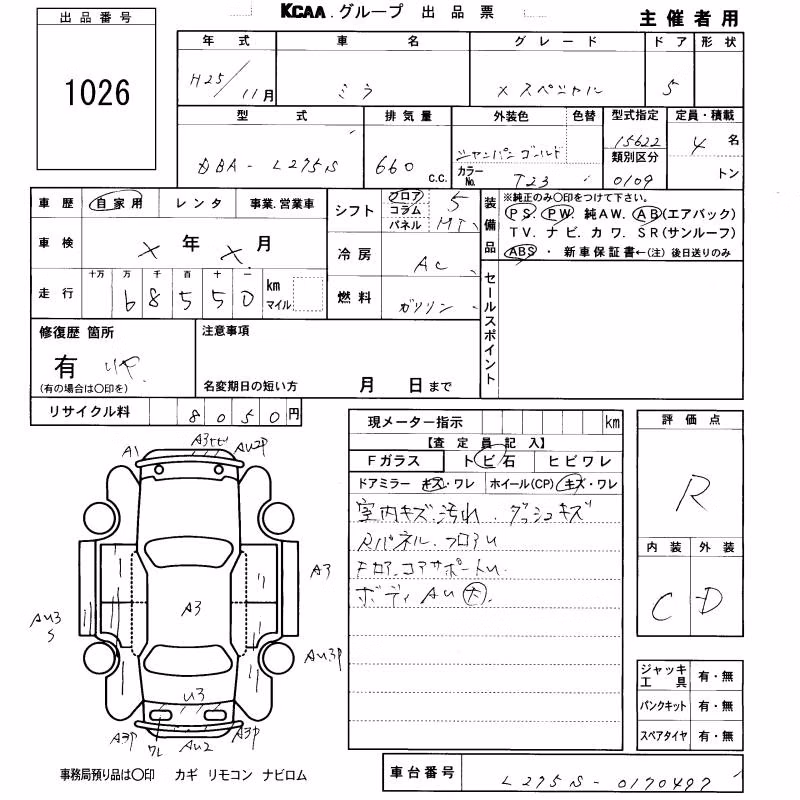 KCAA グループ 出品票
主催者用
出品番号
1026
年式 車名 グレード ドア 形状
H25/11月 ミラ Xスペシャル 5
型式 排気量 外装色 色替 型式指定 定員・積載
DBA-L275S 660 c.c. シャンパンゴールド 15622 4名
カラーNo. T23 類別区分 0109 トン
車歴 自家用 レンタ 事業.営業車
シフト フロア コラム パネル 5 MT
装備品
※純正のみ〇印をつけて下さい。
PS PW 純AW. AB(エアバック)
TV. ナビ. カワ. SR(サンルーフ)
ABS ・ 新車保証書←(注) 後日送りのみ
車検 X年X月
冷房 AC
走行 十万 万 千 百 十 一 km マイル
68550
燃料 ガソリン
セールスポイント
修復歴 箇所
有
(有の場合は〇印を)
注意事項
名変期日の短い方 月 日まで
リサイクル料 8050円
現メーター指示 km
【査定員記入】
Fガラス トビ石 ヒビワレ
ドアミラー キズ・ワレ ホイール(CP) キズ・ワレ
室内キズ.汚れ.ダッシュキズ
Rパネル.フロアU
Fフロア.コアサポートU.
ボディAU大
評価点
R
内装 外装
C D
A1 A3 AU2P
A3
A3
AU3
S
AU3P
U3
A3P ワレ AU2 A3P
ジャッキ工具 有・無
パンクキット 有・無
スペアタイヤ 有・無
事務局預り品は〇印 カギ リモコン ナビロム
車台番号 L275S-0170497